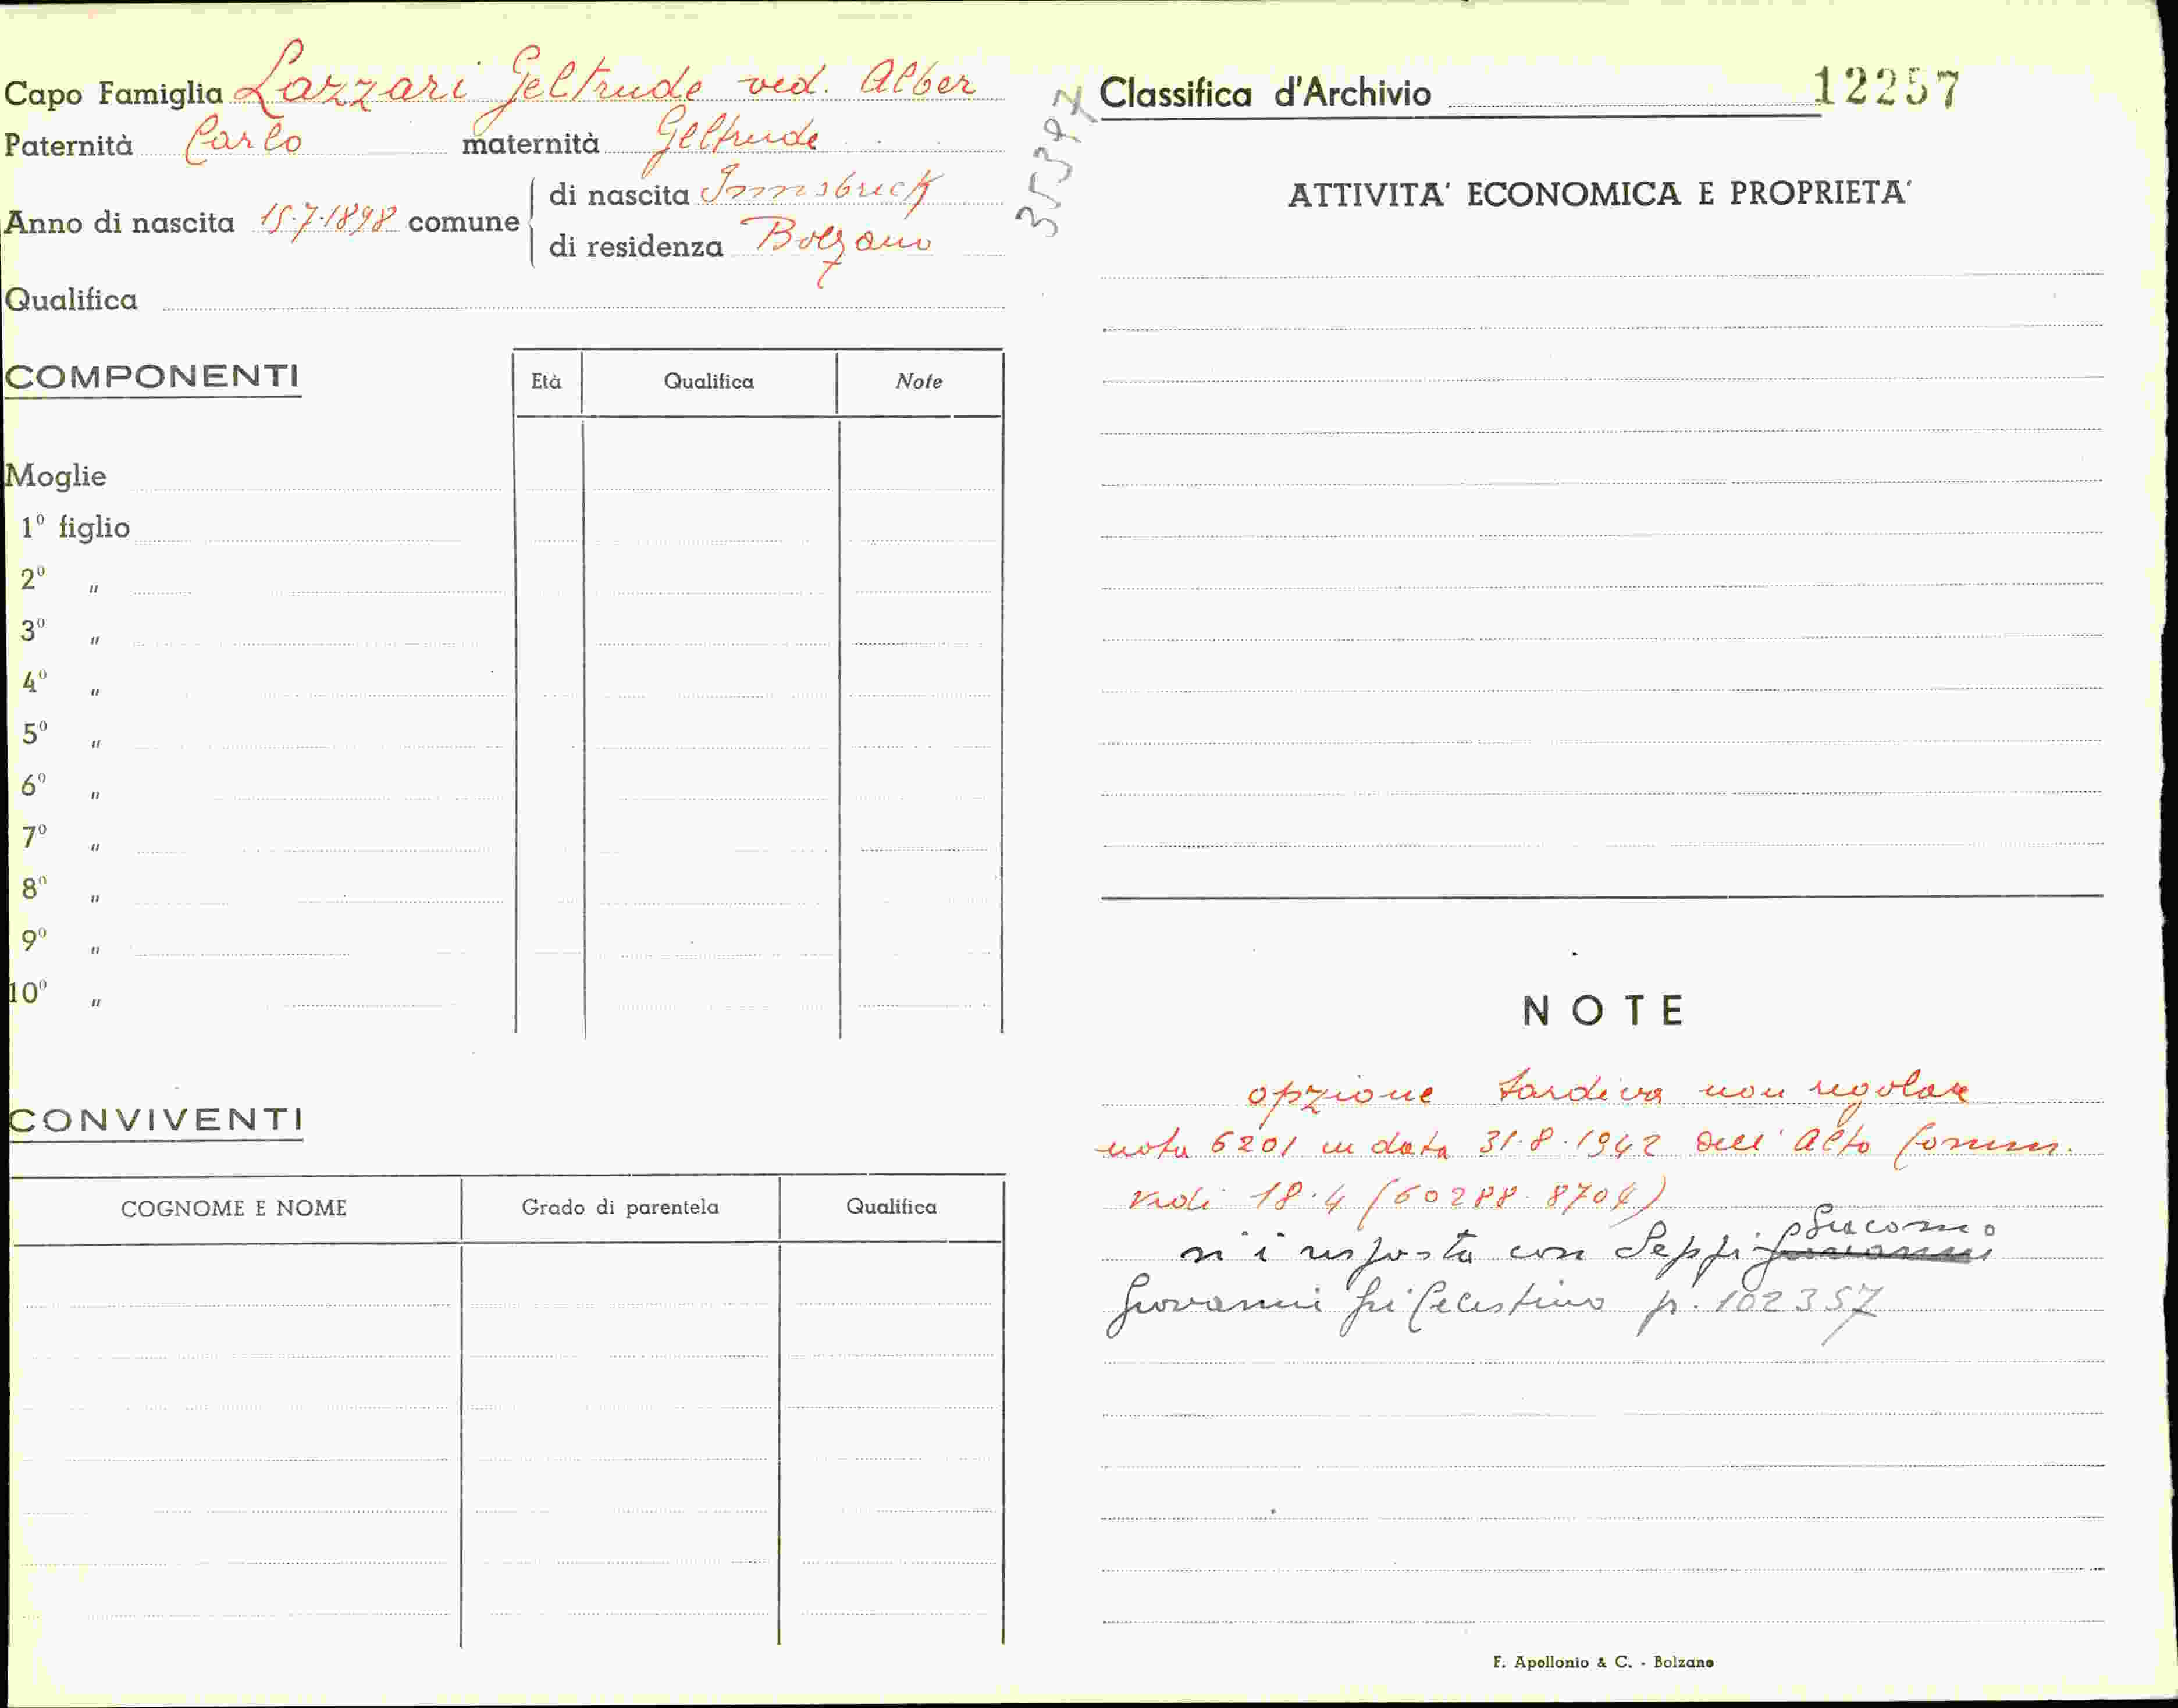 Capo Famiglia Lazzari Geltrude ved. Alber
Paternità Carlo maternità Geltrude
Anno di nascita 15.7.1898 comune
di nascita Innsbruck
di residenza Bolzano
Qualifica
COMPONENTI
Età Qualifica Note
Moglie
1º figlio
2º "
3º "
4º "
5º "
6º "
7º "
8º "
9º "
10º "
CONVIVENTI
COGNOME E NOME Grado di parentela Qualifica
Classifica d'Archivio 12257
ATTIVITA' ECONOMICA E PROPRIETA'
NOTE
opzione tardiva non regolare
nota 6201 in data 31.8.1942 dell'Alto Comm.
vedi 18.4 (60288.8704)
risposta con Seppi Giacomo
Giovanni fu Celestino p. 102357
F. Apollonio & C. - Bolzano